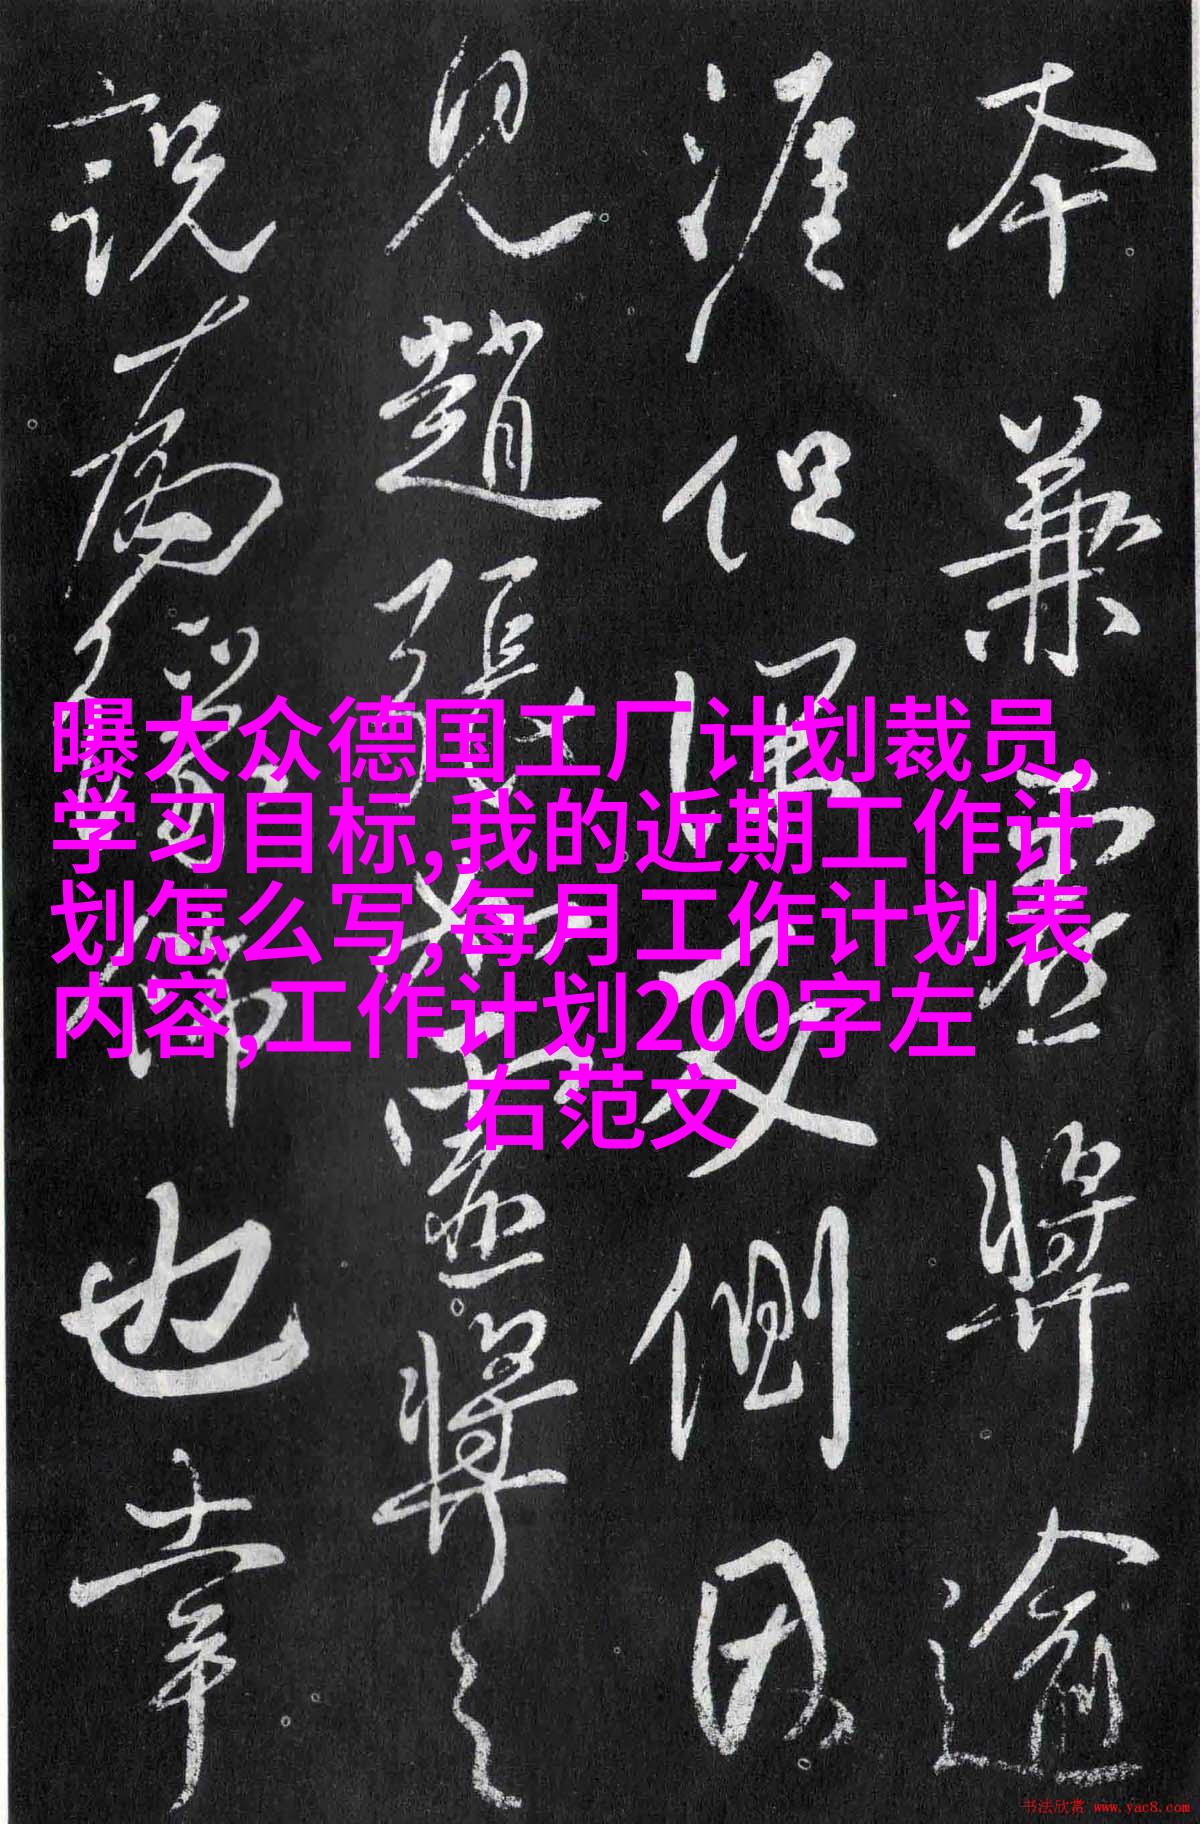 本兼雲將逾
涯但恨又側因
見趙張草遠將之
說為繇佛也章
曝大众德国工厂计划裁员,
学习目标,我的近期工作计
划怎么写,每月工作计划表
内容,工作计划200字左
右范文
书法欣赏 www.yac8.com